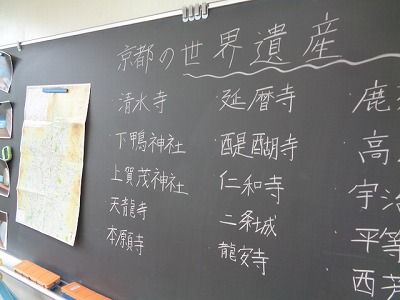 京都の世界遺産
清水寺
下鴨神社
上賀茂神社
天龍寺
本願寺
延暦寺
醍醐寺
仁和寺
二条城
龍安寺
鹿
高
宇治
平等
西芳